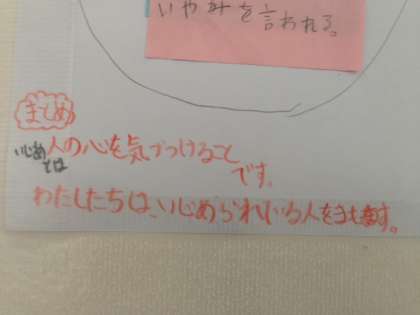 いやみを言われる。
まとめ
いじめとは
人の心を気づつけること
です。
わたしたちは、いじめられている人をまもます。